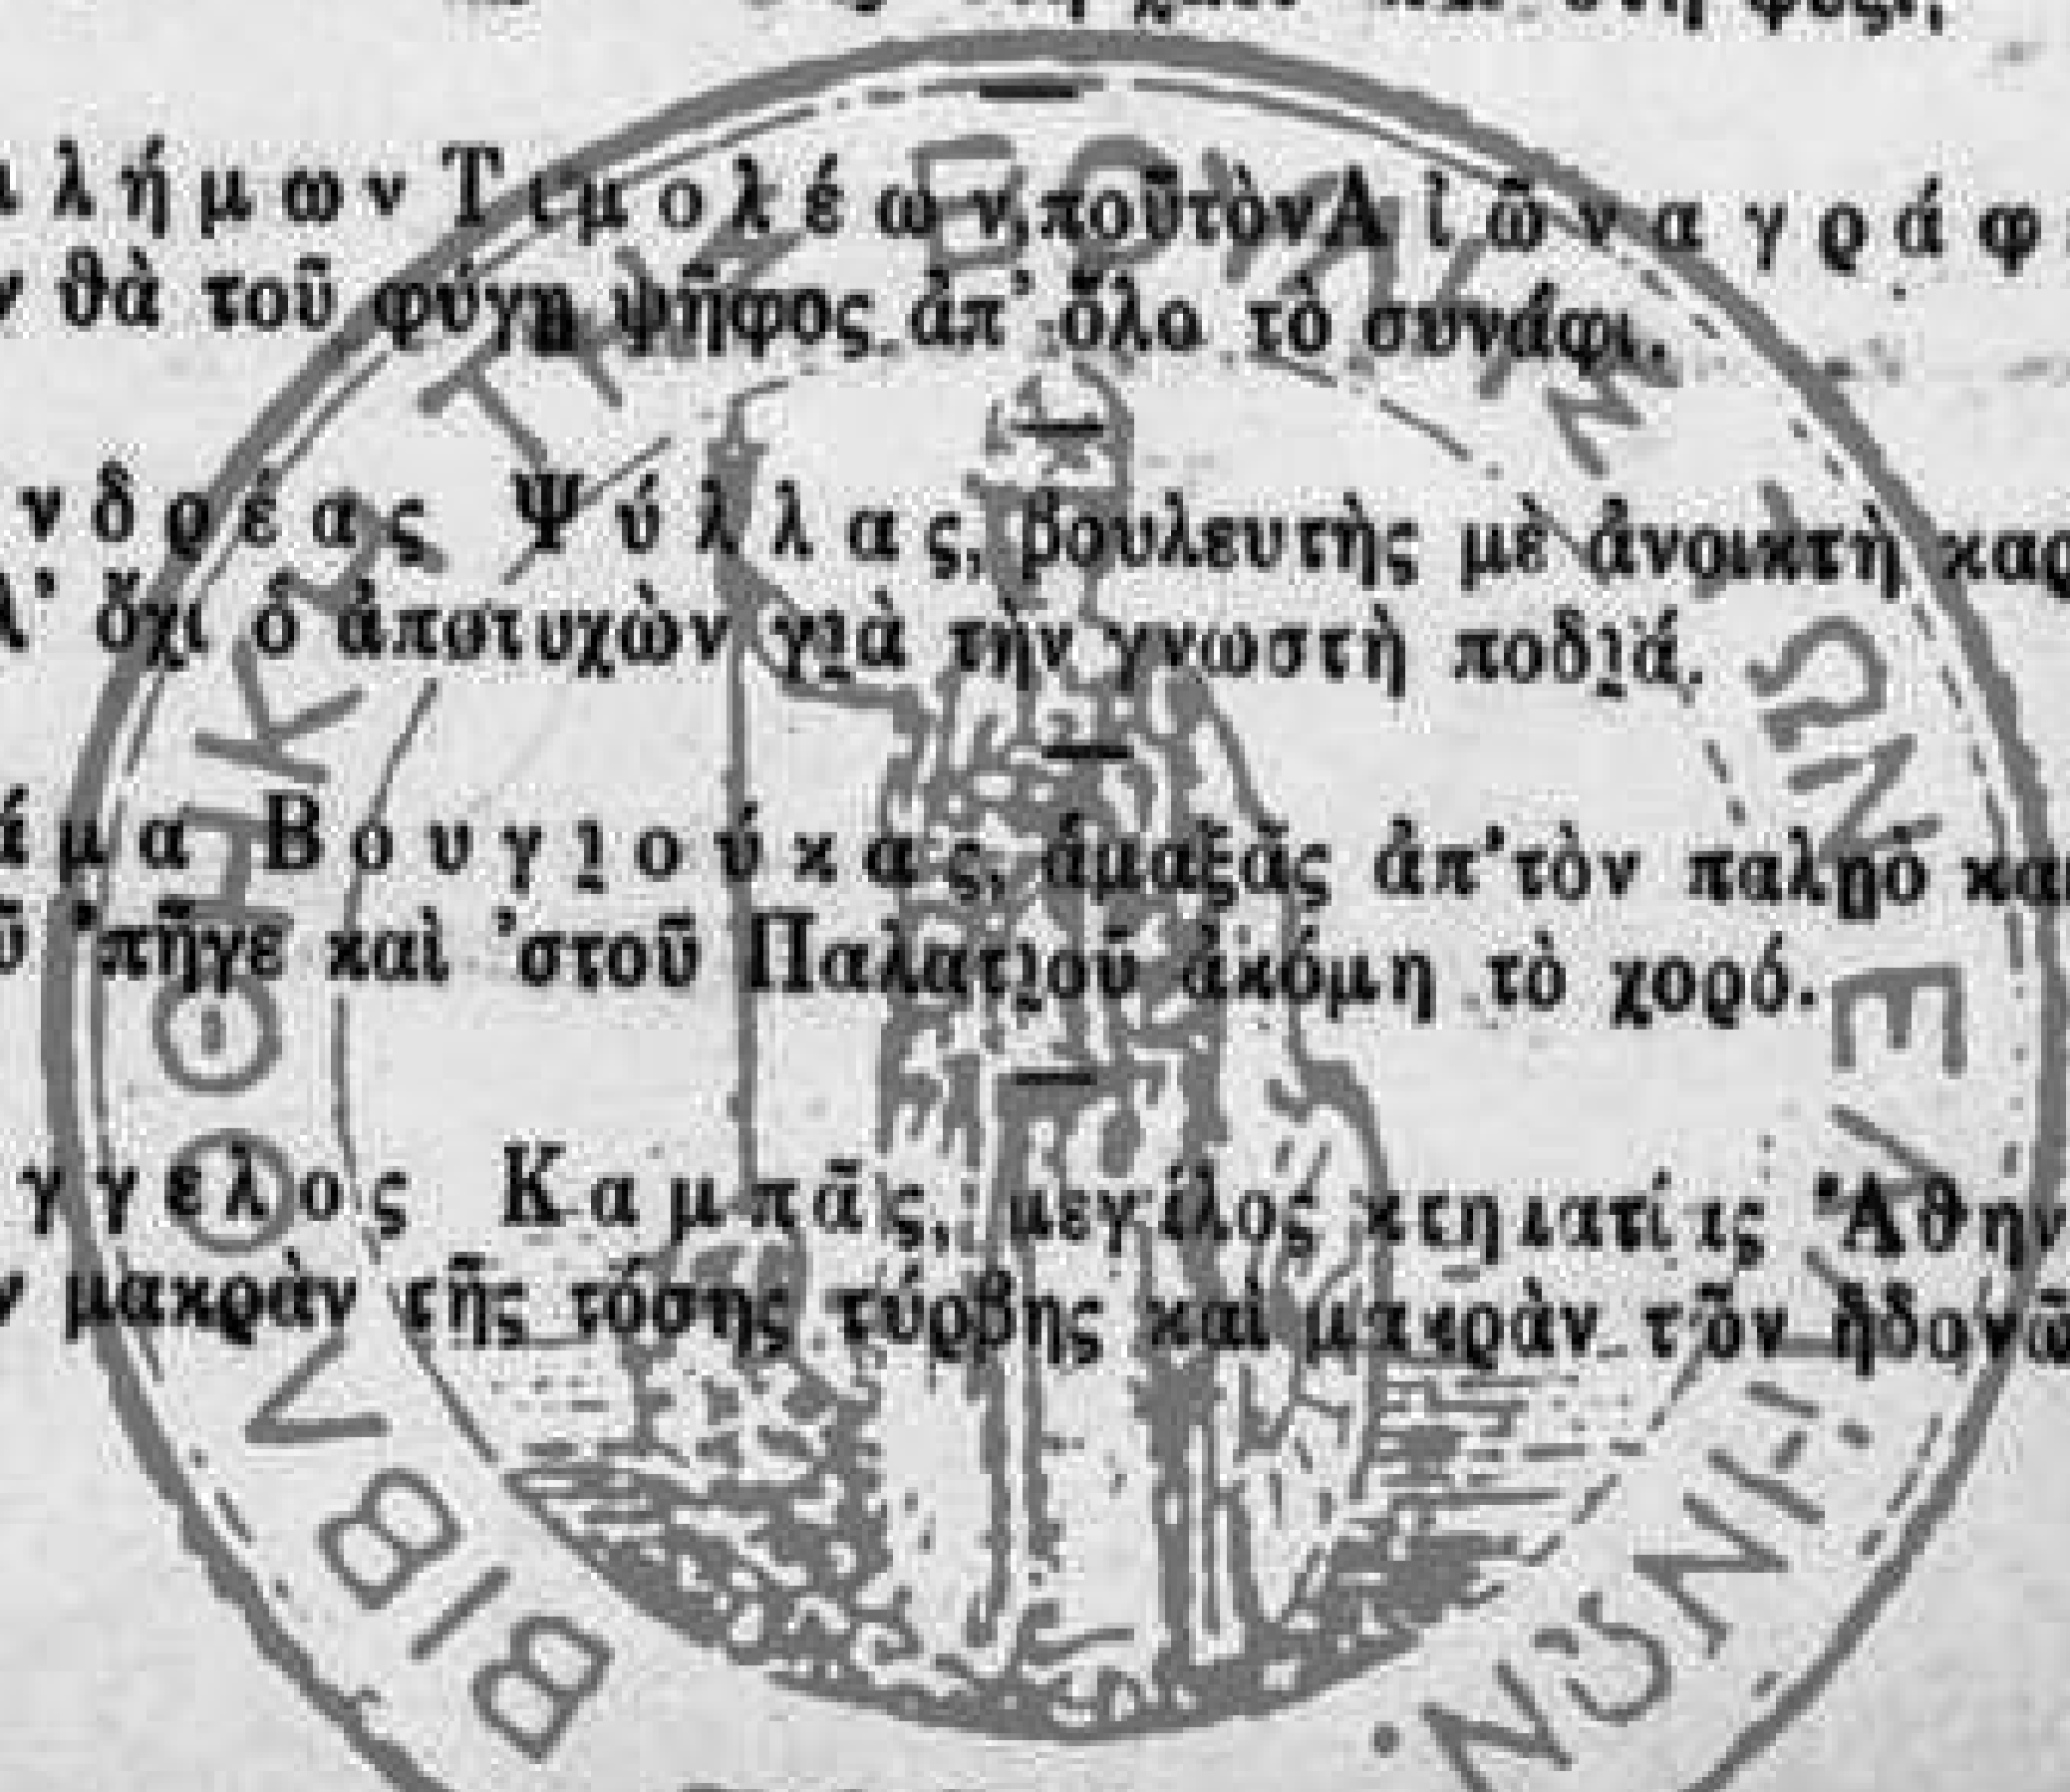 ιλήμων Τιμολέων, ποῦ τὸν Αἰῶνα γράφ
θὰ τοῦ φύγῃ ψῆφος ἀπ' ὅλο τὸ συνάφι.
νδρέας Ψύλλας, βουλευτὴς μὲ ἀνοικτὴ καρ
Α' ὄχι ὁ ἀποτυχὼν γιὰ τὴν γνωστὴ ποδιά.
άμα Βουγιούκας, ἁμαξᾶς ἀπ' τὸν παληὸ και
ῦ 'πῆγε καὶ 'στοῦ Παλατιοῦ ἀκόμη τὸ χορό.
γγελος Καμπᾶς, μεγάλος κτηματίας Ἀθην
ν μακρὰν τῆς τόσης τύρβης καὶ μακρὰν τῶν ἡδονῶ
ΒΙΒΛΙΟΘΗΚΗ ΤΗΣ ΒΟΥΛΗΣ ΤΩΝ ΕΛΛΗΝΩΝ